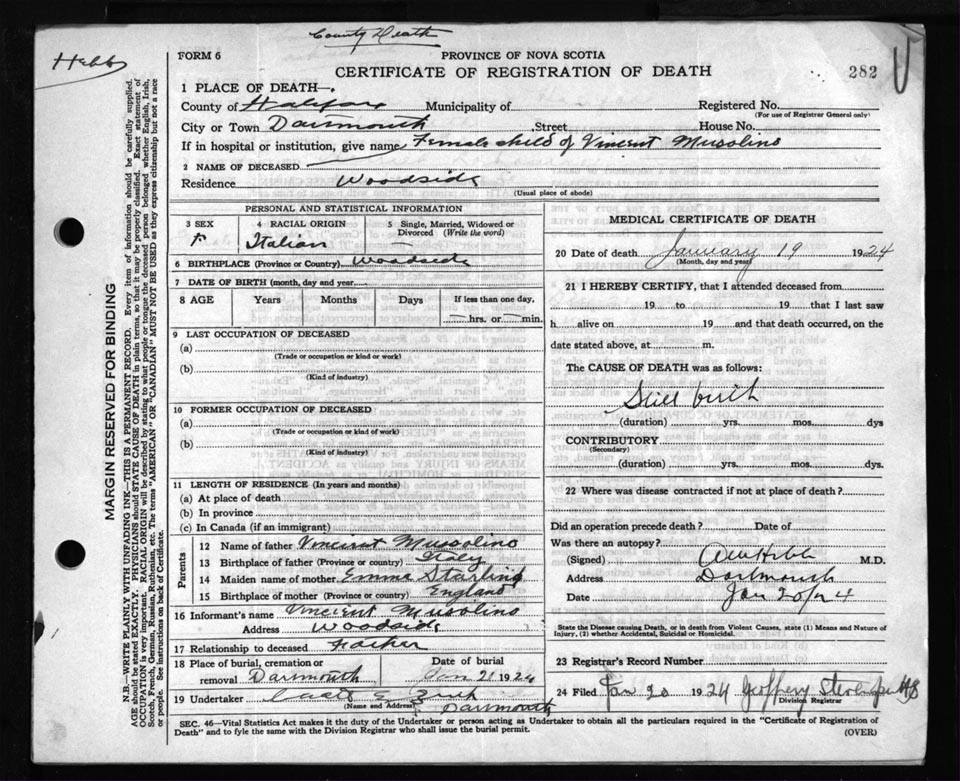 County Death
Hebb
FORM 6
PROVINCE OF NOVA SCOTIA
CERTIFICATE OF REGISTRATION OF DEATH
282
1 PLACE OF DEATH—
County of Halifax Municipality of Registered No.
(For use of Registrar General only)
City or Town Dartmouth Street House No.
If in hospital or institution, give name Female child of Vincent Musolino
2 NAME OF DECEASED
Residence Woodside
(Usual place of abode)
PERSONAL AND STATISTICAL INFORMATION
3 SEX 4 RACIAL ORIGIN 5 Single, Married, Widowed or Divorced (Write the word)
F Italian —
6 BIRTHPLACE (Province or Country) Woodside
7 DATE OF BIRTH (month, day and year)
8 AGE Years Months Days If less than one day,
— hrs. or — min.
9 LAST OCCUPATION OF DECEASED
(a)
(Trade or occupation or kind or work)
(b)
(Kind of industry)
10 FORMER OCCUPATION OF DECEASED
(a)
(Trade or occupation or kind of work)
(b)
(Kind of industry)
11 LENGTH OF RESIDENCE (In years and months)
(a) At place of death
(b) In province
(c) In Canada (if an immigrant)
Parents
12 Name of father Vincent Musolino
13 Birthplace of father (Province or country) Italy
14 Maiden name of mother Emma Starling
15 Birthplace of mother (Province or country) England
16 Informant's name Vincent Musolino
Address Woodside
17 Relationship to deceased Father
18 Place of burial, cremation or removal Dartmouth Date of burial Jan 21 1924
19 Undertaker
(Name and Address) Dartmouth
MEDICAL CERTIFICATE OF DEATH
20 Date of death January 19 1924
(Month, day and year)
21 I HEREBY CERTIFY, that I attended deceased from
19 to 19 that I last saw
h alive on 19 and that death occurred, on the
date stated above, at m.
The CAUSE OF DEATH was as follows:
Still birth
(duration) yrs. mos. dys
CONTRIBUTORY
(Secondary)
(duration) yrs. mos. dys.
22 Where was disease contracted if not at place of death?
Did an operation precede death? Date of
Was there an autopsy?
(Signed) Hebb M.D.
Address Dartmouth
Date Jan 20/24
State the Disease causing Death, or in death from Violent Causes, state (1) Means and Nature of Injury, (2) whether Accidental, Suicidal or Homicidal.
23 Registrar's Record Number
24 Filed Jan 20 1924 Geoffery
Division Registrar
SEC. 46—Vital Statistics Act makes it the duty of the Undertaker or person acting as Undertaker to obtain all the particulars required in the "Certificate of Registration of
Death" and to fyle the same with the Division Registrar who shall issue the burial permit.
(OVER)
MARGIN RESERVED FOR BINDING
N.B.—WRITE PLAINLY WITH UNFADING INK—THIS IS A PERMANENT RECORD. Every item of information should be carefully supplied.
AGE should be stated EXACTLY. PHYSICIANS should STATE CAUSE OF DEATH in plain terms, so that it may be properly classified. Exact statement of
OCCUPATION is very important. RACIAL ORIGIN will be described by stating to what people or tongue the deceased person belonged whether English, Irish,
Scotch, French, German, Russian, Ruthenian, etc. The terms "AMERICAN" OR "CANADIAN" MUST NOT BE USED as they express citizenship but not a race
or people. See instructions on back of Certificate.